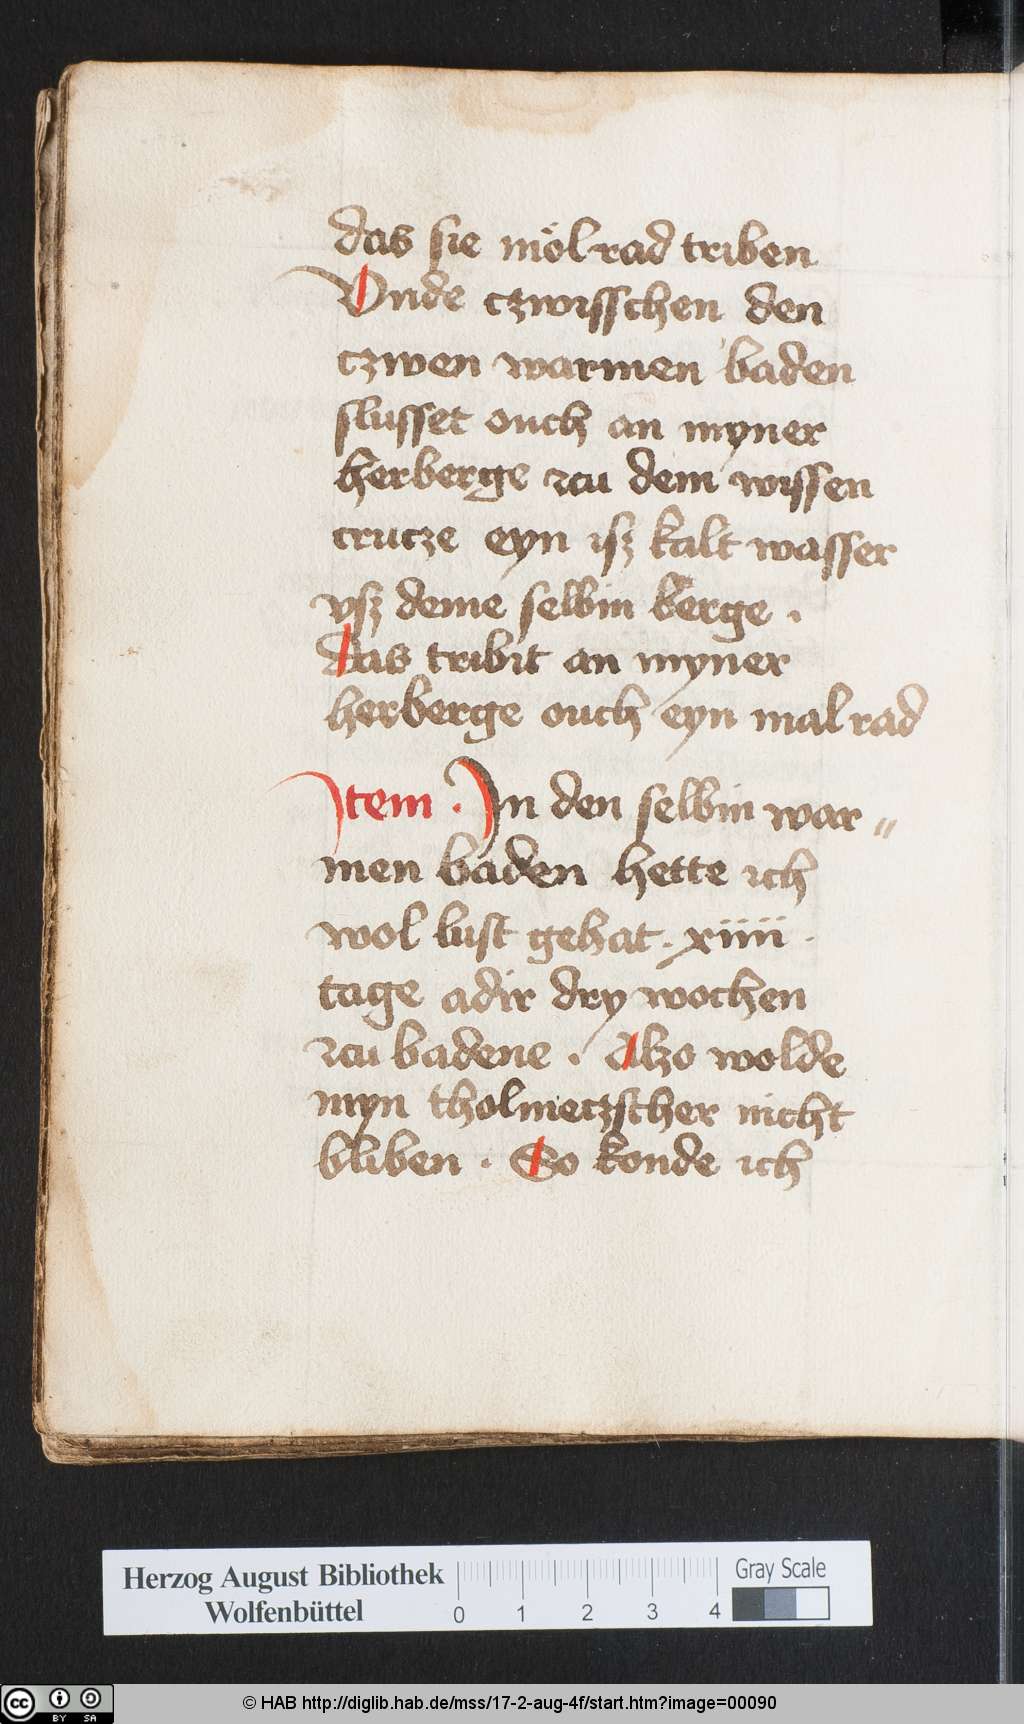 das sie möl rad triben
Vnde czwisschen den
czwen warmen baden
slusset ouch an myner
herberge zcu dem wissen
crucze eyn isz kalt wasser
vsz deme selbin berge .
das tribit an myner
herberge ouch eyn mal rad
Item . In den selbin war〃
men baden hette ich
wol lust gehat . xiiii .
tage adir dry wochen
zcu badene . Alzo wolde
myn tholmeczscher nicht
bliben . So konde ich
Herzog August Bibliothek
Wolfenbüttel
0 1 2 3 4
Gray Scale
cc BY SA
© HAB http://diglib.hab.de/mss/17-2-aug-4f/start.htm?image=00090